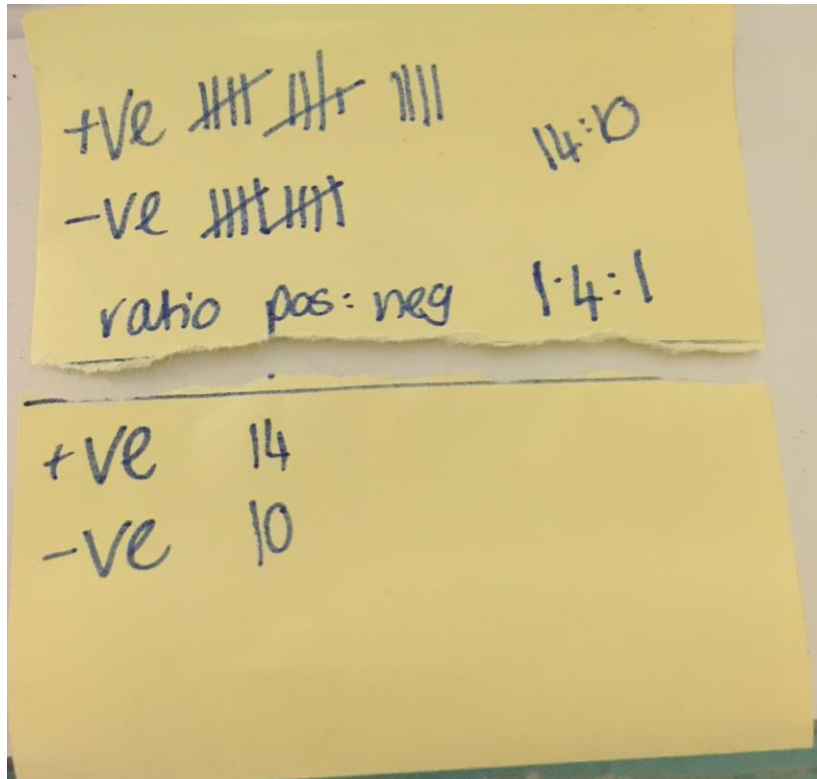 +ve 卌 卌 |||| 14:10
-ve 卌 卌
ratio pos: neg 1·4:1
+ve 14
-ve 10